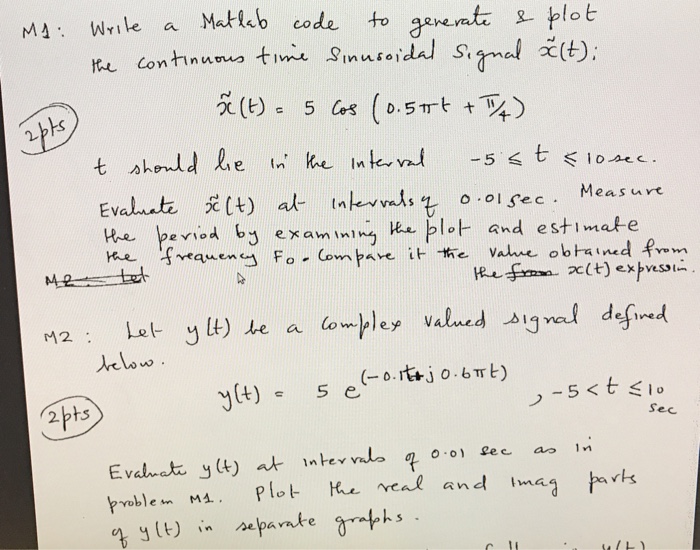 M1: Write a Matlab code to generate & plot
the continuous time Sinusoidal Signal x̃(t);
x̃(t) = 5 Cos (0.5πt + π/4)
2pts
t should lie in the interval -5 ≤ t ≤ 10 sec.
Evaluate x̃(t) at intervals of 0.01 sec. Measure
the period by examining the plot and estimate
the frequency F0. Compare it the value obtained from
M2 Let the from x(t) expression.
M2: Let y(t) be a complex valued signal defined
below.
y(t) = 5 e^(-0.1t+j0.6πt) , -5<t≤10
sec
2pts
Evaluate y(t) at intervals of 0.01 sec as in
problem M1. Plot the real and imag parts
of y(t) in separate graphs.
y(t)